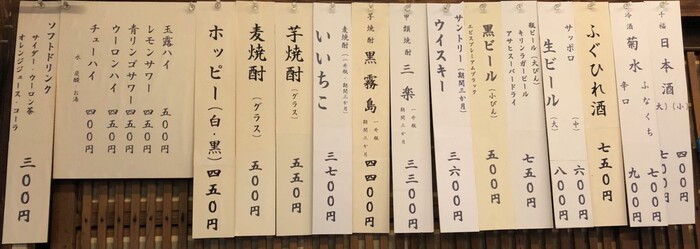 千福
日本酒
(小) 四〇〇円
(大) 七〇〇円
冷酒
菊水
ふなくち 七〇〇円
辛口 九〇〇円
ふぐひれ酒
七五〇円
サッポロ
生ビール
(中) 六〇〇円
(大) 八〇〇円
瓶ビール(大びん)
キリンラガービール
アサヒスーパードライ
七五〇円
エビスプレミアムブラック
黒ビール(小びん)
五〇〇円
サントリー(期間三か月)
ウイスキー
三六〇〇円
甲類焼酎
三楽
一升瓶
期間三か月
三三〇〇円
芋焼酎
黒霧島
一升瓶
期間三か月
四四〇〇円
麦焼酎(一升瓶 期間三か月)
いいちこ
三七〇〇円
芋焼酎(グラス)
五五〇円
麦焼酎(グラス)
五〇〇円
ホッピー(白・黒)四五〇円
玉露ハイ 五〇〇円
レモンサワー 四五〇円
青リンゴサワー 四五〇円
ウーロンハイ 四五〇円
チューハイ 四〇〇円
水 炭酸 お湯
ソフトドリンク
サイダー・ウーロン茶
オレンジジュース・コーラ
三〇〇円